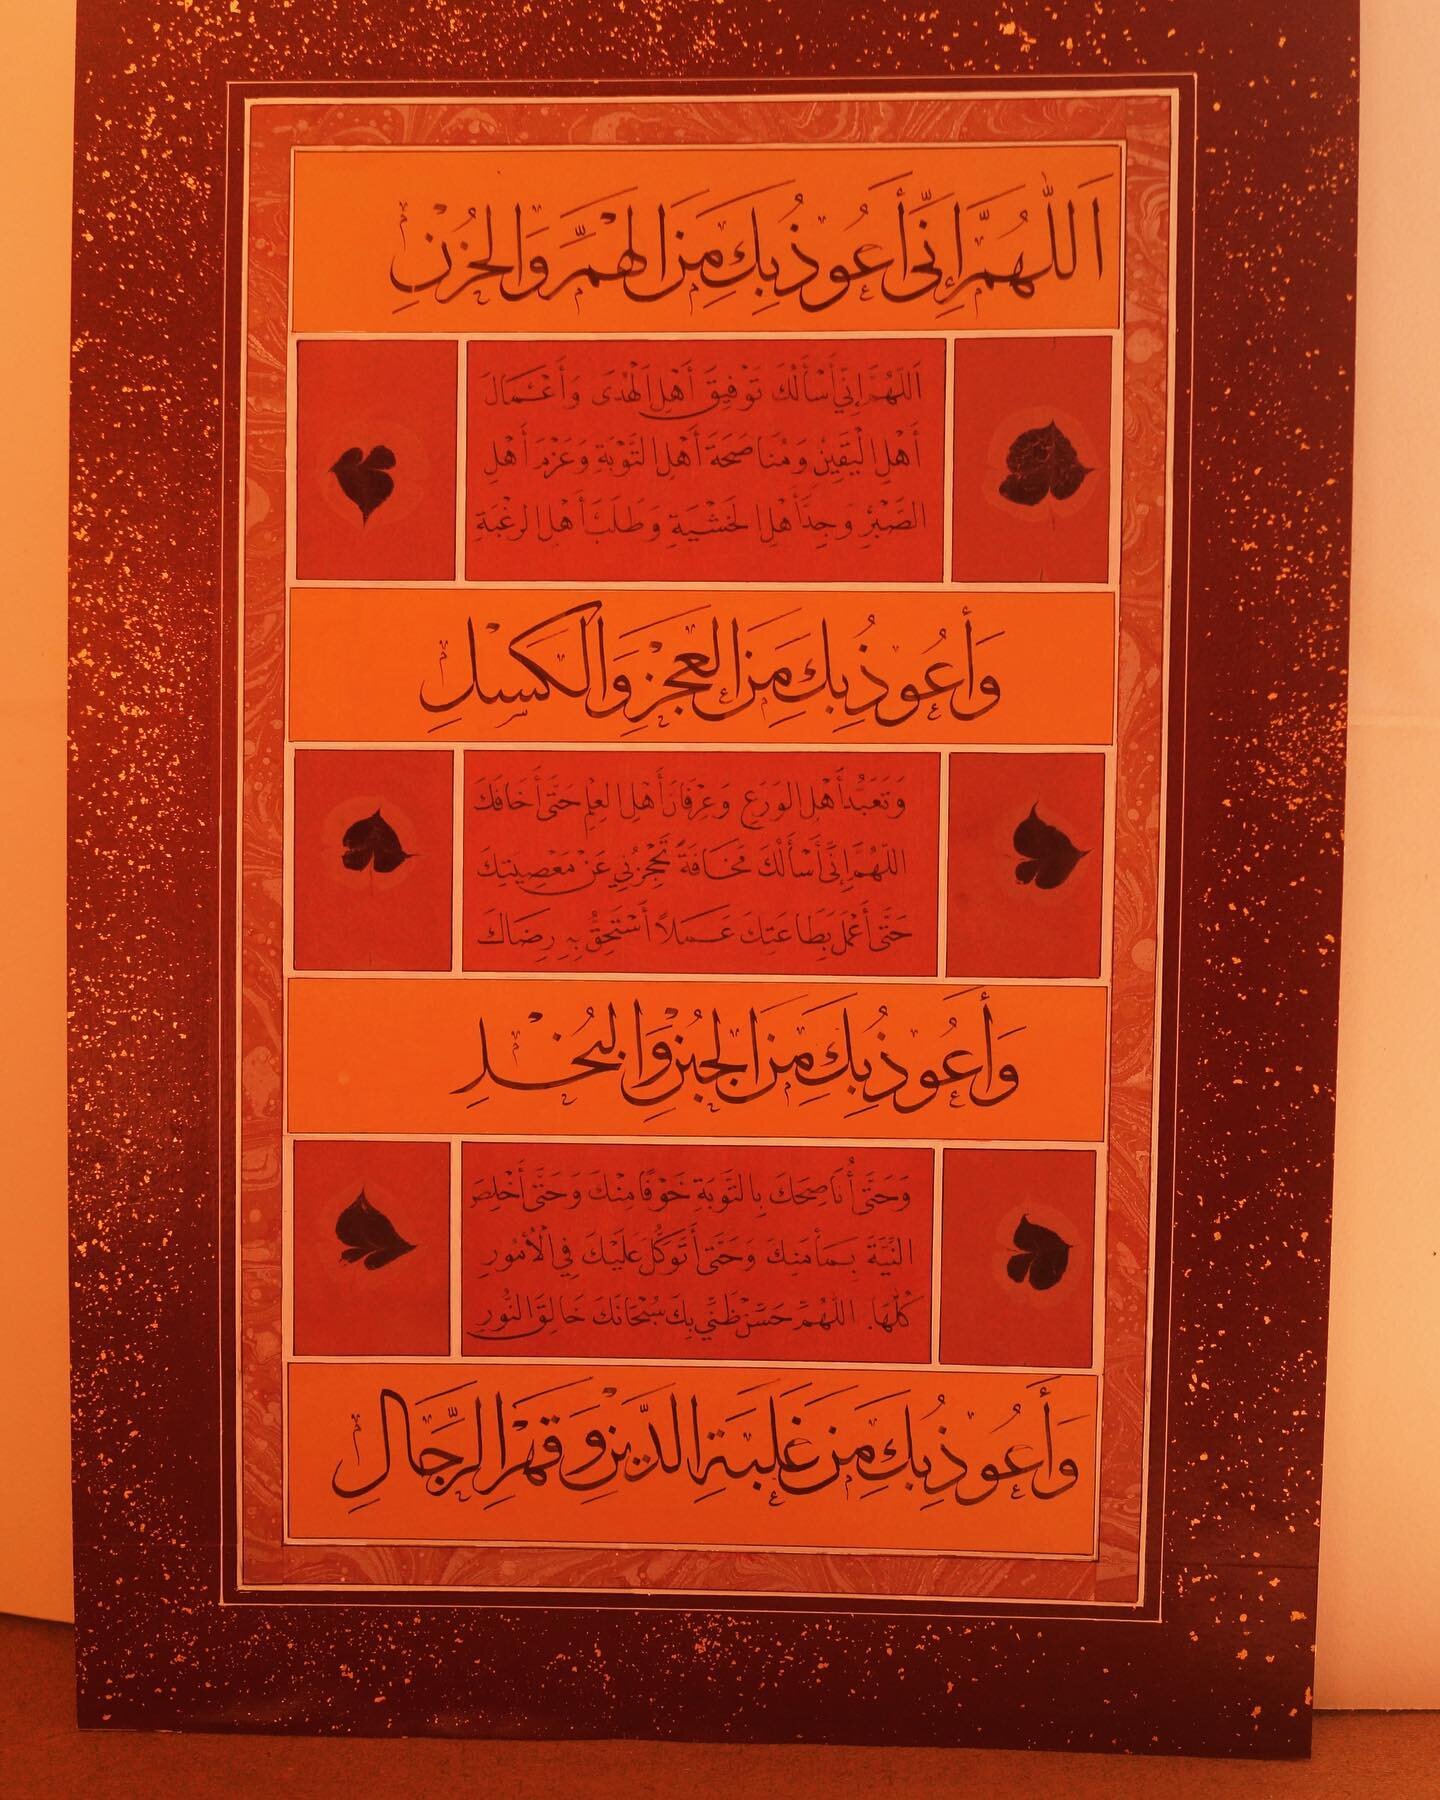 اَللّٰهُمَّ إِنِّي أَعُوذُ بِكَ مِنَ الْهَمِّ وَالْحُزْنِ
اَللّٰهُمَّ إِنِّي أَسْأَلُكَ تَوْفِيقَ أَهْلِ الْهُدَى وَأَعْمَالَ
أَهْلِ الْيَقِينِ وَمُنَاصَحَةَ أَهْلِ التَّوْبَةِ وَعَزْمَ أَهْلِ
الصَّبْرِ وَجِدَّ أَهْلِ الْخَشْيَةِ وَطَلَبَ أَهْلِ الرغْبَةِ
وَأَعُوذُ بِكَ مِنَ الْعَجْزِ وَالْكَسَلِ
وَتَعَبُّدَ أَهْلِ الوَرَعِ وَعِرْفَانَ أَهْلِ العِلْمِ حَتَّى أَخَافَكَ
اللّٰهُمَّ إِنِّي أَسْأَلُكَ مَخَافَةً تَحْجُزُنِي عَنْ مَعْصِيَتِكَ
حَتَّى أَعْمَلَ بِطَاعَتِكَ عَمَلاً أَسْتَحِقُّ بِهِ رِضَاكَ
وَأَعُوذُ بِكَ مِنَ الْجُبْنِ وَالْبُخْلِ
وَحَتَّى أُنَاصِحَكَ بِالتَّوْبَةِ خَوْفًا مِنْكَ وَحَتَّى أُخْلِصَ
النِّيَّةَ بِمَأمَنِكَ وَحَتَّى أَتَوَكَّلَ عَلَيْكَ فِي الْأُمُورِ
كُلِّهَا. اللّٰهُمَّ حَسِّنْ ظَنِّي بِكَ سُبْحَانَكَ خَالِقَ النُّورِ
وَأَعُوذُ بِكَ مِنْ غَلَبَةِ الدَّيْنِ وَقَهْرِ الرِّجَالِ